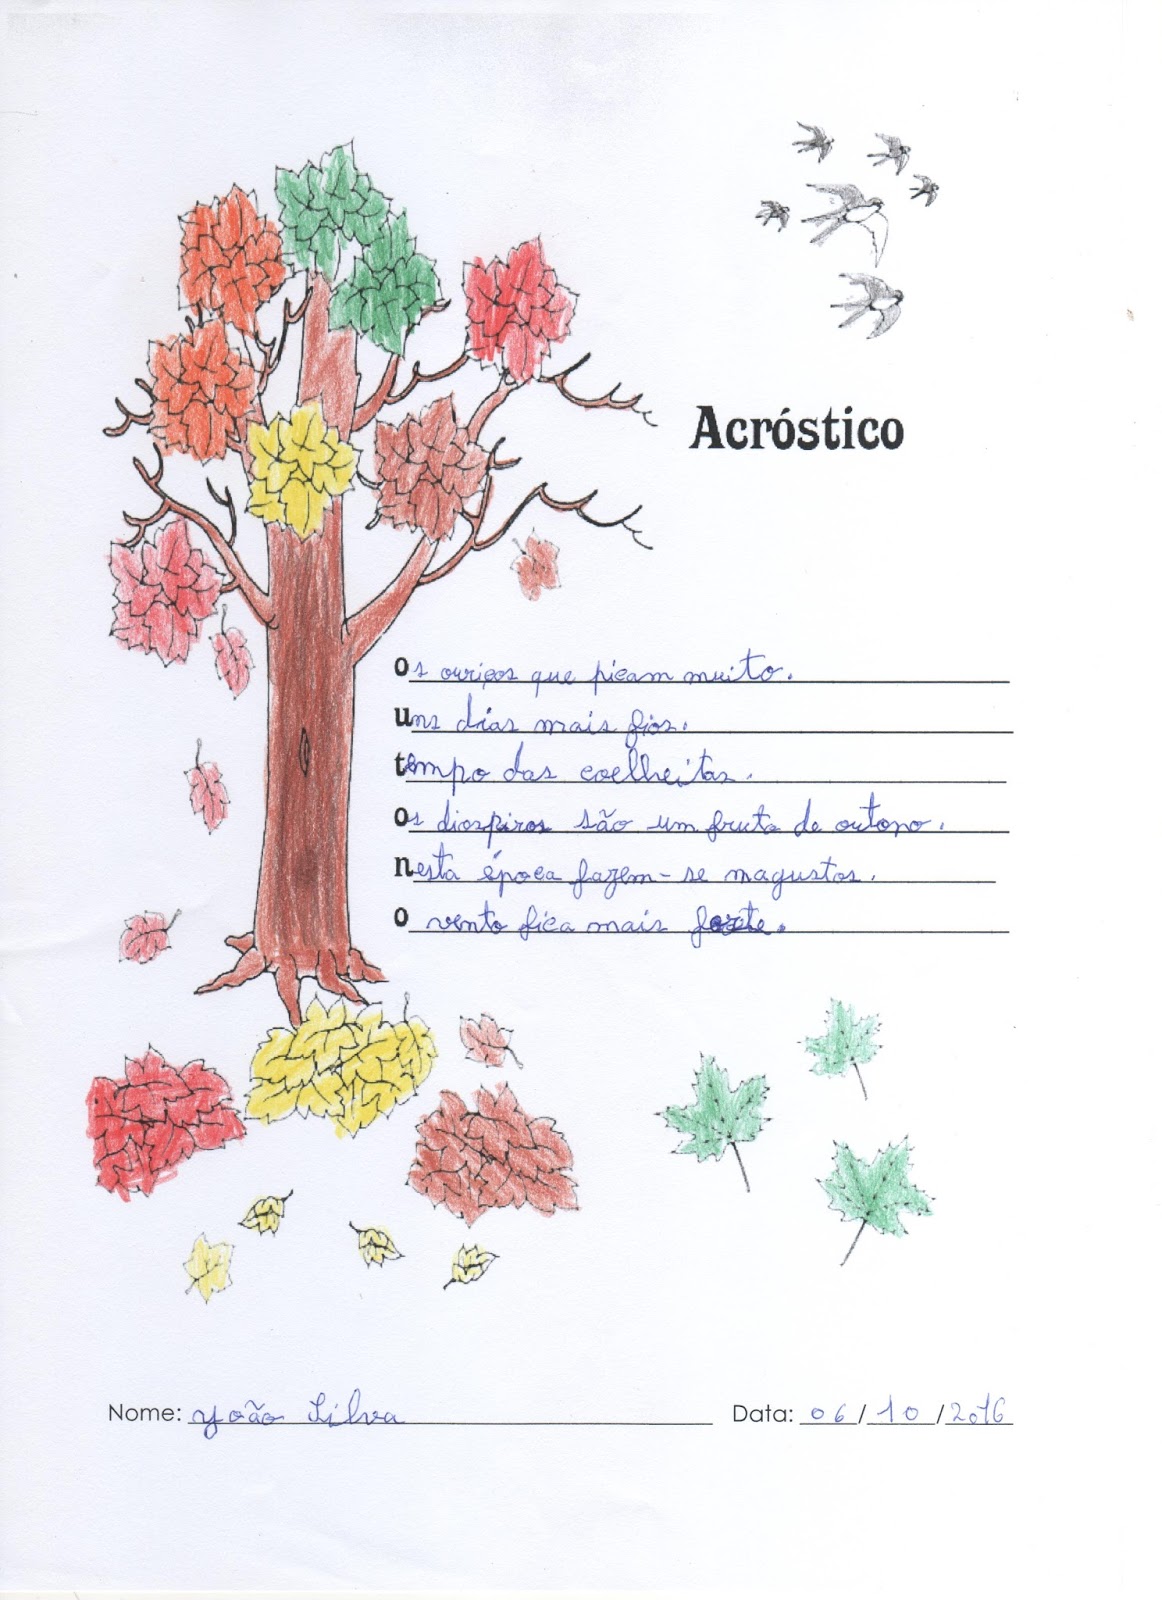 Acróstico
Os ouriços que picam muito.
uns dias mais fios.
tempo das coelheitas.
Os diospiros são um fruto de outono.
nesta época fazem-se magustos.
O vento fica mais forte.
Nome: João Silva Data: 06/10/2016